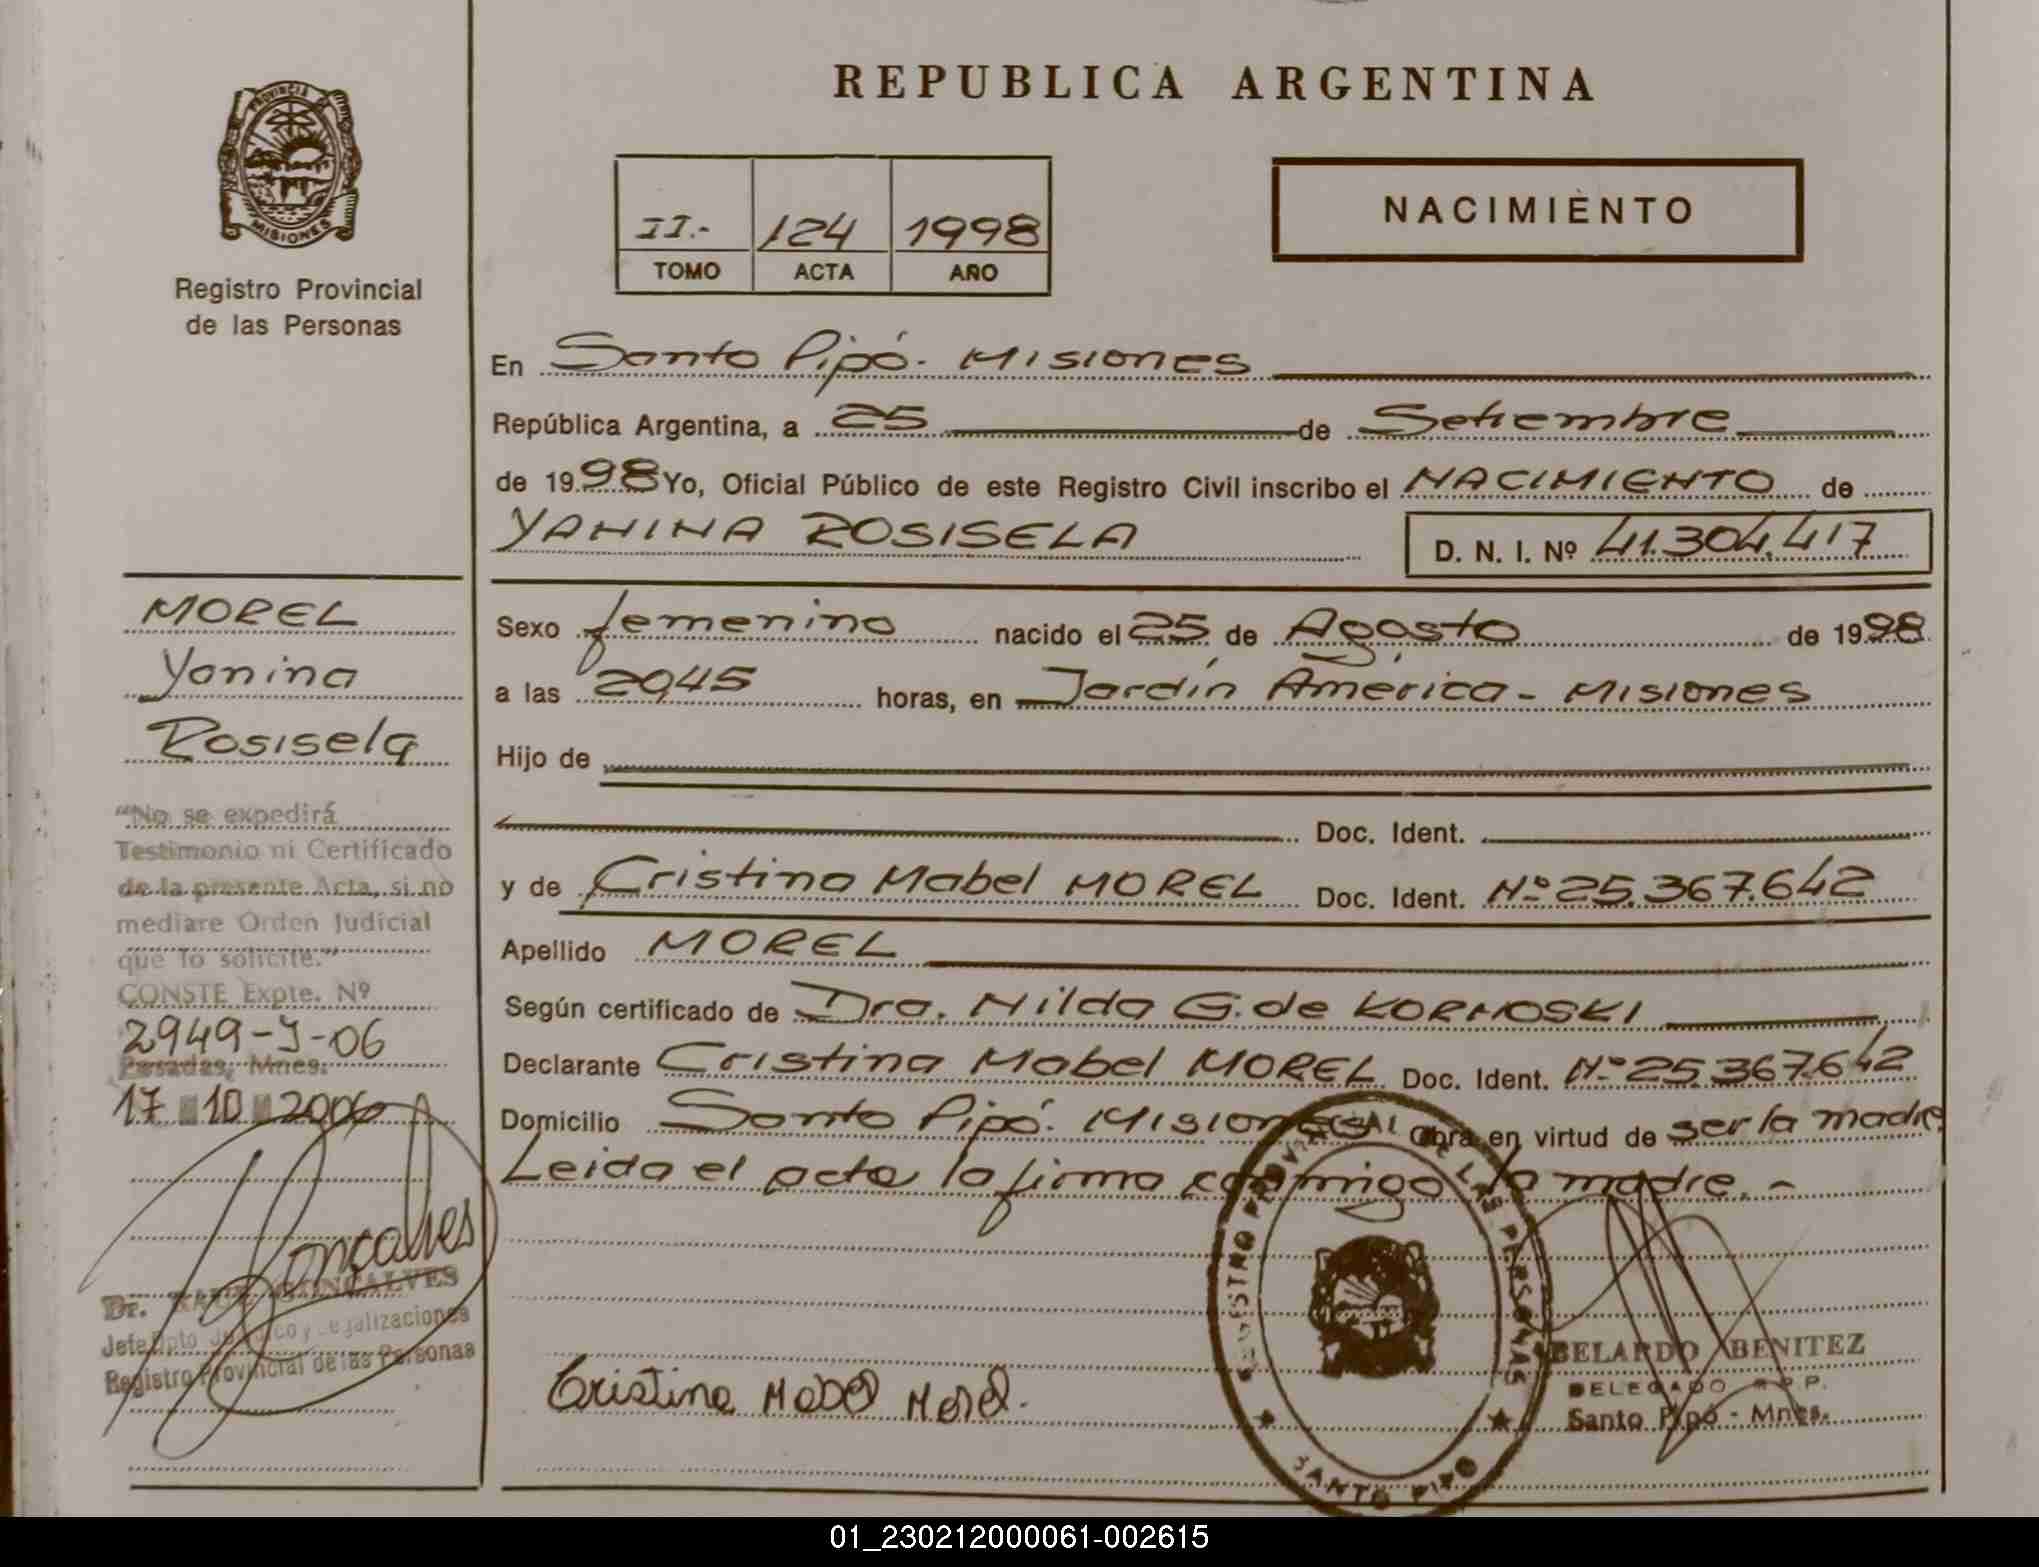 REPUBLICA ARGENTINA
PROVINCIA
MISIONES
Registro Provincial
de las Personas
II.- 124 1998
TOMO ACTA AÑO
NACIMIENTO
En Santo Pipó - Misiones
República Argentina, a 25 de Setiembre
de 1998 Yo, Oficial Público de este Registro Civil inscribo el NACIMIENTO de
YANINA ROSISELA D. N. I. Nº 41.304.417
MOREL
Yanina
Rosisela
Sexo femenino nacido el 25 de Agosto de 1998
a las 20,45 horas, en Jardín América - Misiones
Hijo de
Doc. Ident.
y de Cristina Mabel MOREL Doc. Ident. Nº 25.367.642
Apellido MOREL
Según certificado de Dra. Nilda G. de KORNOSKI
Declarante Cristina Mabel MOREL Doc. Ident. Nº 25.367.642
Domicilio Santo Pipó. Misiones Obra en virtud de ser la madre.
Leida el acta la firma conmigo la madre. -
"No se expedirá
Testimonio ni Certificado
de la presente Acta, si no
mediare Orden Judicial
que lo solicite."
CONSTE Expte. Nº
2949-J-06
Posadas, Mnes.
17 10 2006
Gonçalves
Dr. RAUL GONÇALVES
Jefe Dpto Jurídico y Legalizaciones
Registro Provincial de las Personas
Cristina Mabel Morel.
REGISTRO PROVINCIAL DE LAS PERSONAS
SANTO PIPO
BELARDO BENITEZ
DELEGADO R.P.P.
Santo Pipó - Mnes.
01_230212000061-002615